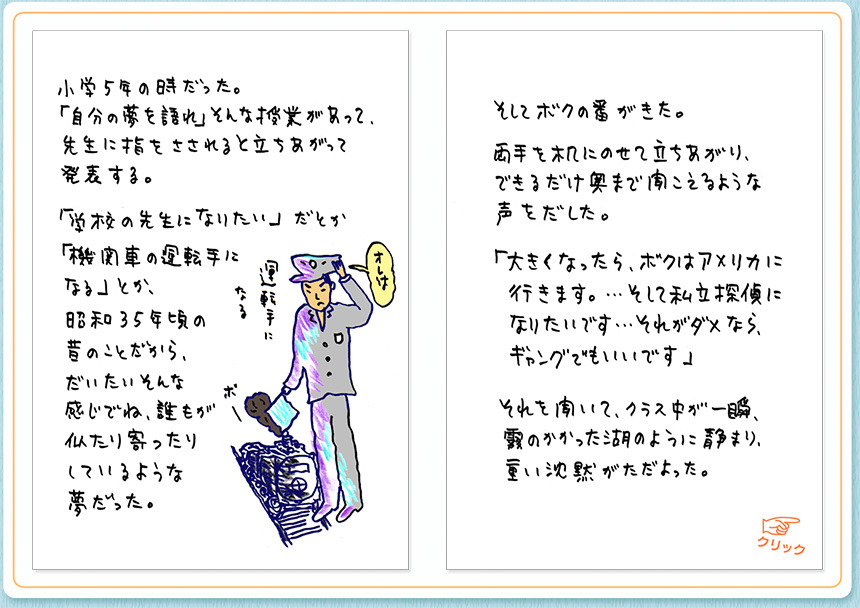 小学5年の時だった。
「自分の夢を語れ」そんな授業があって、
先生に指をさされると立ちあがって
発表する。
「学校の先生になりたい」だとか
「機関車の運転手に
なる」とか、
昭和35年頃の
昔のことだから、
だいたいそんな
感じでね、誰もが
似たり寄ったり
しているような
夢だった。
オレは
運転手に
なる
ボー
そしてボクの番がきた。
両手を机にのせて立ちあがり、
できるだけ奥まで聞こえるような
声をだした。
「大きくなったら、ボクはアメリカに
行きます。…そして私立探偵に
なりたいです…それがダメなら、
ギャングでもいいです」
それを聞いて、クラス中が一瞬、
霧のかかった湖のように静まり、
重い沈黙がただよった。
クリック